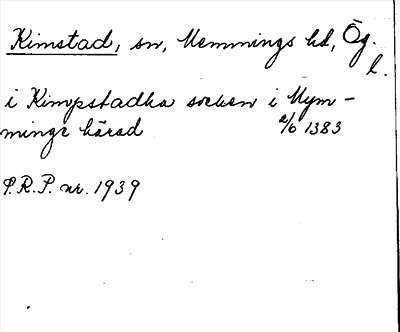 Kimstad, sn, Memmings hd, Ög.
l.
i Kimpstadha socken i Mym-
minge härad 2/6 1383
S.R.P. nr. 1939